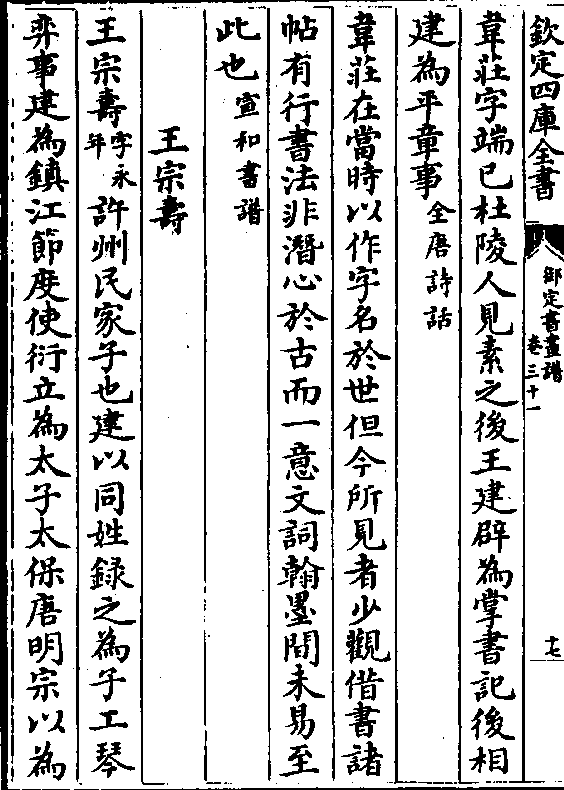 欽定四庫全書
御定書畫譜
卷三十一
十七
韋莊字端己杜陵人見素之後王建辟為掌書記後相
建為平章事全唐詩話
韋莊在當時以作字名於世但今所見者少觀借書諸
帖有行書法非潛心於古而一意文詞翰墨間未易至
此也宣和書譜
王宗壽
王宗壽字永年許州民家子也建以同姓録之為子工琴
弈事建為鎮江節度使衍立為太子太保唐明宗以為